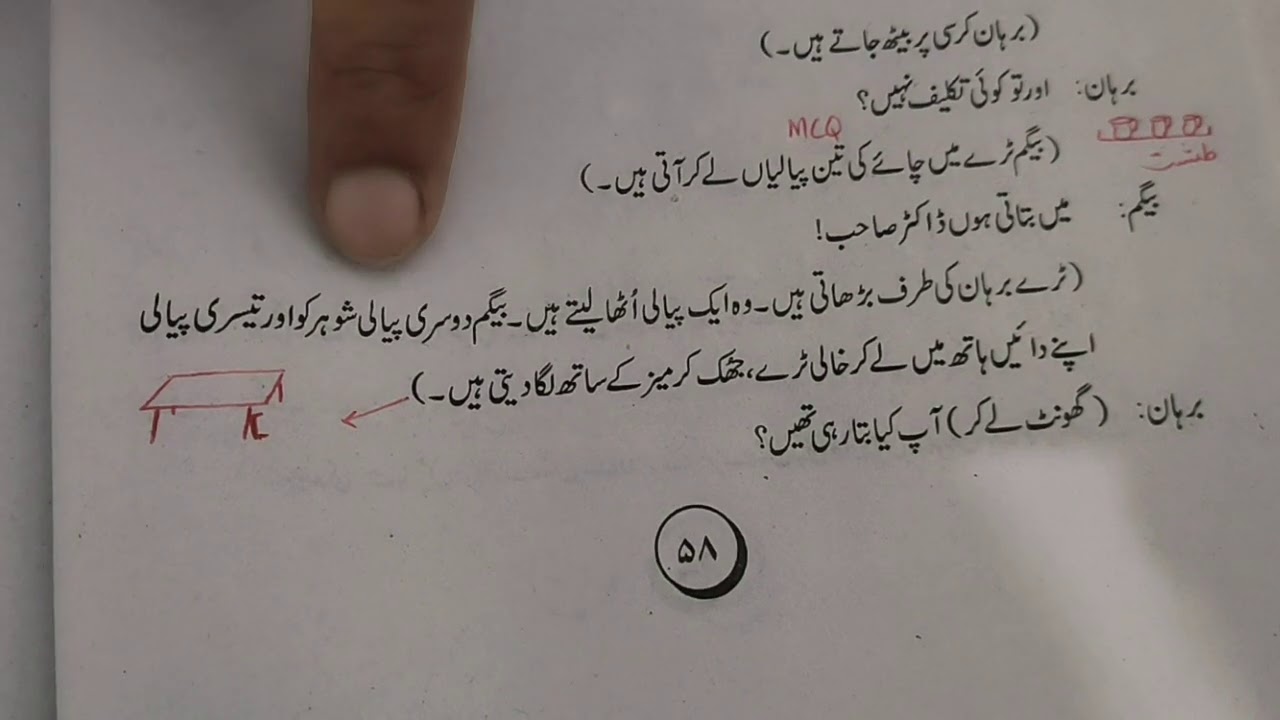 (برہان کرسی پر بیٹھ جاتے ہیں۔)
برہان: اور تو کوئی تکلیف نہیں؟
MCQ
(بیگم ٹرے میں چائے کی تین پیالیاں لے کر آتی ہیں۔)
طشت
بیگم: میں بتاتی ہوں ڈاکٹر صاحب!
(ٹرے برہان کی طرف بڑھاتی ہیں۔ وہ ایک پیالی اُٹھا لیتے ہیں۔ بیگم دوسری پیالی شوہر کو اور تیسری پیالی
اپنے دائیں ہاتھ میں لے کر خالی ٹرے، جھک کر میز کے ساتھ لگا دیتی ہیں۔)
برہان: (گھونٹ لے کر) آپ کیا بتا رہی تھیں؟
۵۸